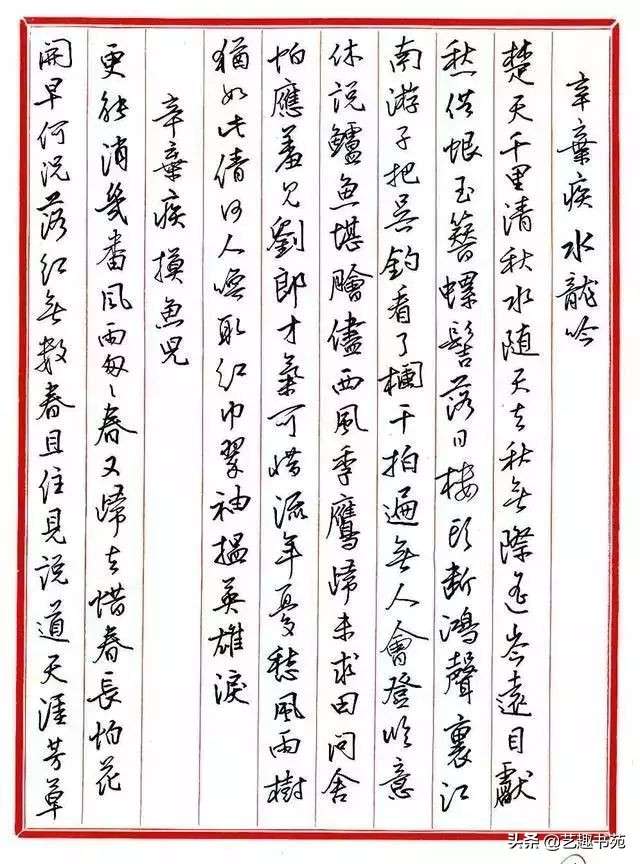 辛棄疾水龍吟
楚天千里清秋水随天去秋無際遥岑遠目獻
愁供恨玉簪螺髻落日樓頭断鴻聲裏江
南游子把吴鈎看了欄干拍遍無人會登临意
休説鱸魚堪膾儘西風季鷹歸未求田问舍
怕應羞见劉郎才氣可惜流年憂愁風雨樹
猶如此倩何人唤取红巾翠袖揾英雄淚
辛棄疾摸魚兒
更能消幾番風雨匆々春又歸去惜春長怕花
開早何况落红無數春且住見説道天涯芳草
头条 @艺趣书苑